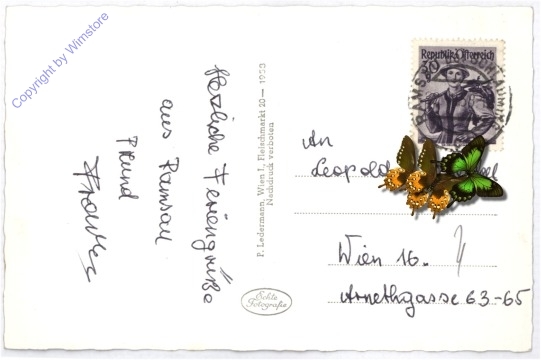 Copyright by Wimstore
Herzliche Feriengrüße
aus Ramsau
Freund
P. Ledermann, Wien I., Fleischmarkt 20 — 1953
Nachdruck verboten
Echte
Fotografie
Republik Österreich
RAMSAU
An
Leopold
Wien 16.
Arnethgasse 63-65